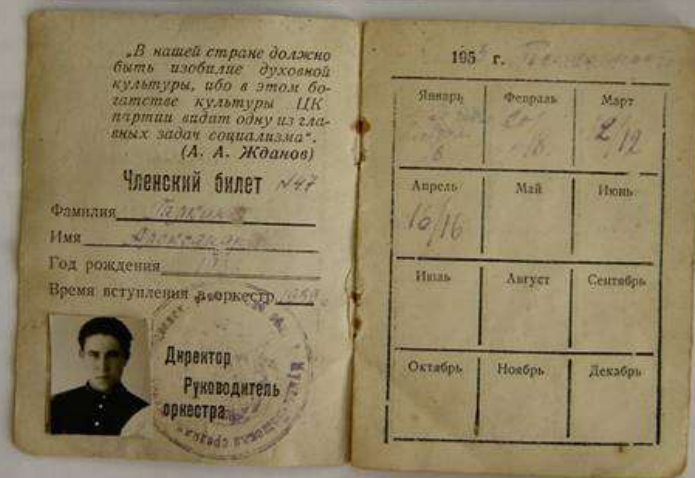 „В нашей стране должно
быть изобилие духовной
культуры, ибо в этом бо-
гатстве культуры ЦК
партии видит одну из гла-
вных задач социализма“.
(А. А. Жданов)
Членский билет №47
Фамилия
Имя
Год рождения
Время вступления в оркестр
Директор
Руководитель
оркестра
195 г.
Январь Февраль Март
2/12
Апрель Май Июнь
16/16
Июль Август Сентябрь
Октябрь Ноябрь Декабрь